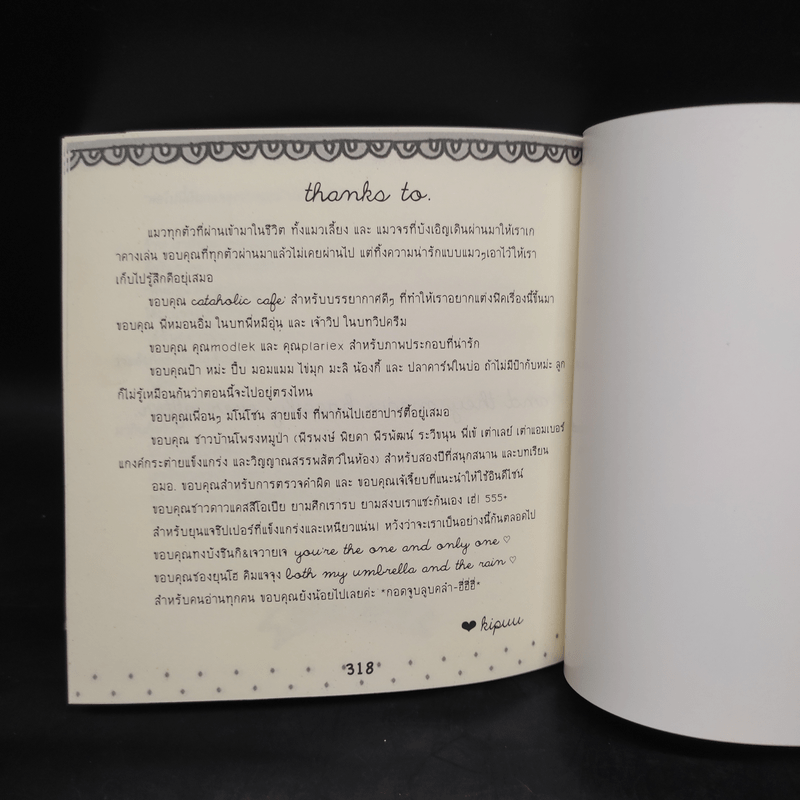 thanks to.
แมวทุกตัวที่ผ่านเข้ามาในชีวิต ทั้งแมวเลี้ยง และ แมวจรที่บังเอิญเดินผ่านมาให้เราเก
าคางเล่น ขอบคุณที่ทุกตัวผ่านมาแล้วไม่เคยผ่านไป แต่ทิ้งความน่ารักแบบแมวๆเอาไว้ให้เรา
เก็บไปรู้สึกดีอยู่เสมอ
ขอบคุณ cataholic cafe' สำหรับบรรยากาศดีๆ ที่ทำให้เราอยากแต่งฟิคเรื่องนี้ขึ้นมา
ขอบคุณ พี่หมอนอิ่ม ในบทพี่หมีอุ่น และ เจ้าวิป ในบทวิปครีม
ขอบคุณ คุณmodlek และ คุณplariex สำหรับภาพประกอบที่น่ารัก
ขอบคุณป๊า หม่ะ ปิ๊บ มอมแมม ไข่มุก มะลิ น้องกี้ และ ปลาคาร์ฟในบ่อ ถ้าไม่มีป๊ากับหม่ะ ลูก
ก็ไม่รู้เหมือนกันว่าตอนนี้จะไปอยู่ตรงไหน
ขอบคุณเพื่อนๆ มโนโซน สายแข็ง ที่พากันไปเฮฮาปาร์ตี้อยู่เสมอ
ขอบคุณ ชาวบ้านโพรงหมูป่า (พีรพงษ์ พิยดา พีรพัฒน์ ระวีขนุน พี่เข้ เต่าเลย์ เต่าแอมเบอร์
แกงค์กระต่ายแข็งแกร่ง และวิญญาณสรรพสัตว์ในห้อง) สำหรับสองปีที่สนุกสนาน และบทเรียน
อมอ. ขอบคุณสำหรับการตรวจคำผิด และ ขอบคุณเจ้เจี๊ยบที่แนะนำให้ใช้อินดีไซน์
ขอบคุณชาวดาวแคสสิโอเปีย ยามศึกเรารบ ยามสงบเราแซะกันเอง เฮ่! 555+
สำหรับยุนแจชิปเปอร์ที่แข็งแกร่งและเหนียวแน่น! หวังว่าจะเราเป็นอย่างนี้กันตลอดไป
ขอบคุณทงบังชินกิ&เจวายเจ you're the one and only one ♡
ขอบคุณชองยุนโฮ คิมแจจุง both my umbrella and the rain ♡
สำหรับคนอ่านทุกคน ขอบคุณยังน้อยไปเลยค่ะ *กอดจูบลูบคลำ-ฮี่ฮี่ฮี่*
❤ kipuu
318